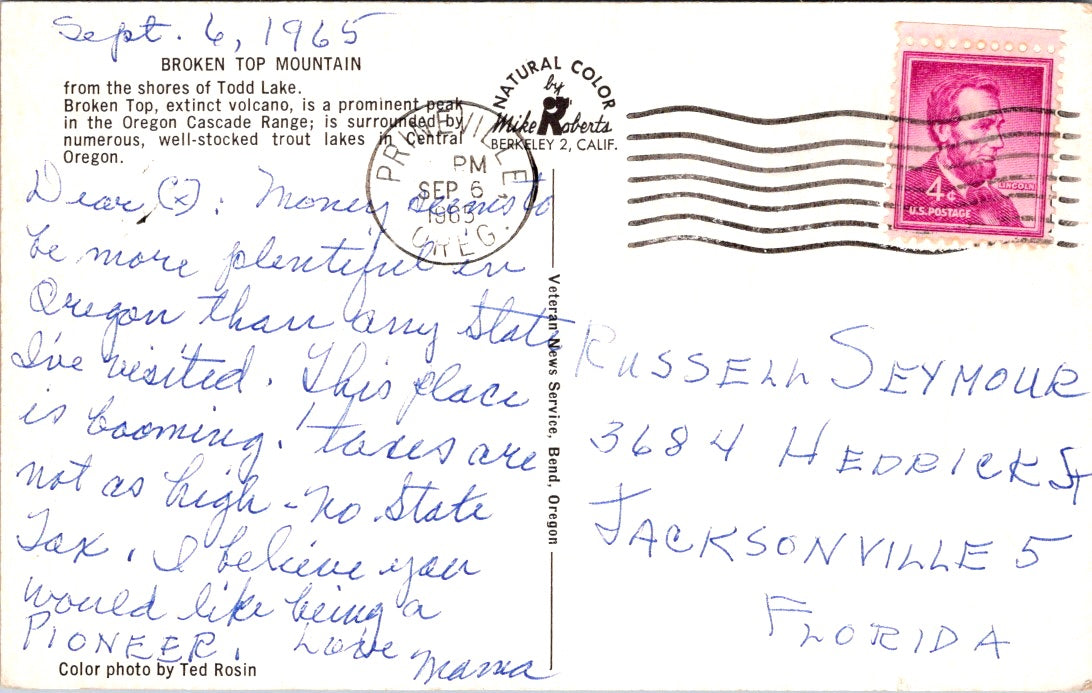 Sept. 6, 1965
BROKEN TOP MOUNTAIN
from the shores of Todd Lake.
Broken Top, extinct volcano, is a prominent peak
in the Oregon Cascade Range; is surrounded by
numerous, well-stocked trout lakes in Central
Oregon.
NATURAL COLOR
by
Mike Roberts
BERKELEY 2, CALIF.
PRINEVILLE
PM
SEP 6
1965
OREG.
LINCOLN
4¢
U.S. POSTAGE
Dear (x): Money seems to
be more plentiful in
Oregon than any State
I've visited. This place
is booming! taxes are
not as high - no State
Tax. I believe you
would like being a
PIONEER. Love
Mama
Color photo by Ted Rosin
Veteran News Service, Bend, Oregon
RUSSELL SEYMOUR
3684 HEDRICK St
JACKSONVILLE 5
FLORIDA